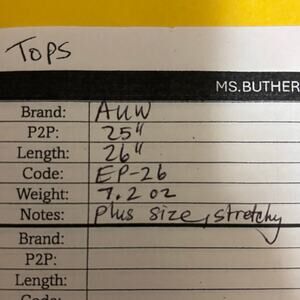 TOPS
MS.BUTHER
Brand: AUW
P2P: 25"
Length: 26"
Code: EP-26
Weight: 7.2 oz
Notes: Plus size, stretchy
Brand:
P2P:
Length:
Code: